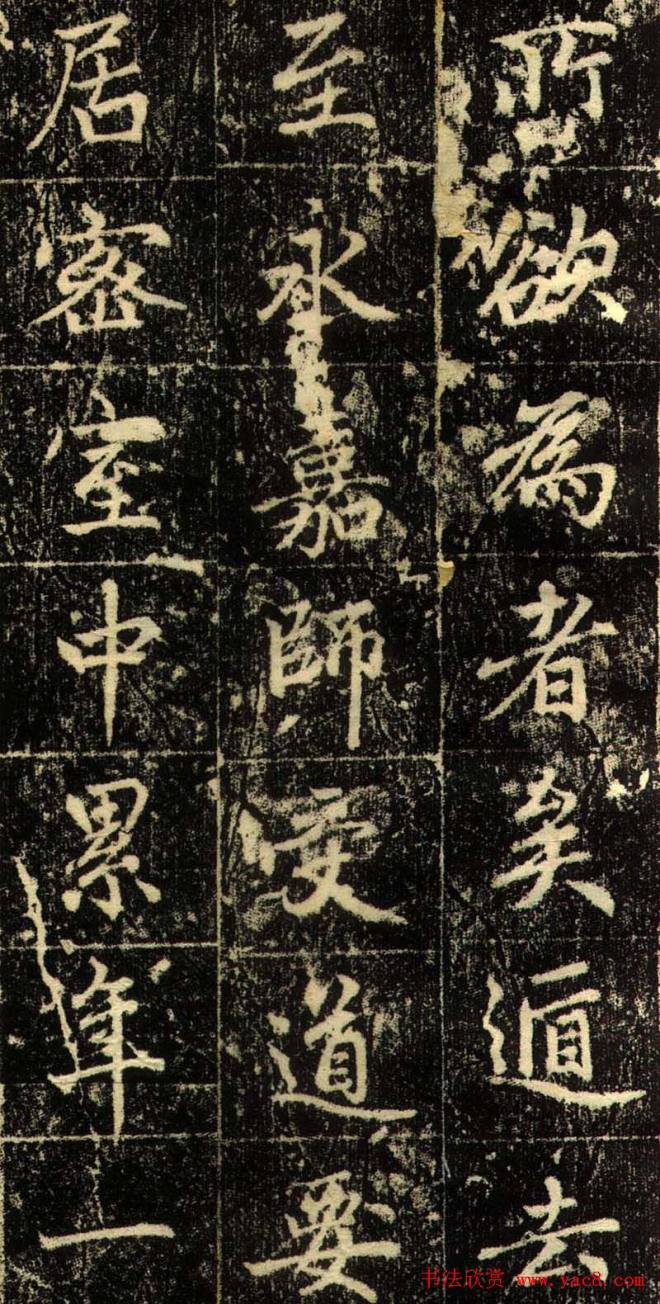 所欲為者矣遁去
至永嘉師受道要
居密室中累年一
书法欣赏 www.yac8.com